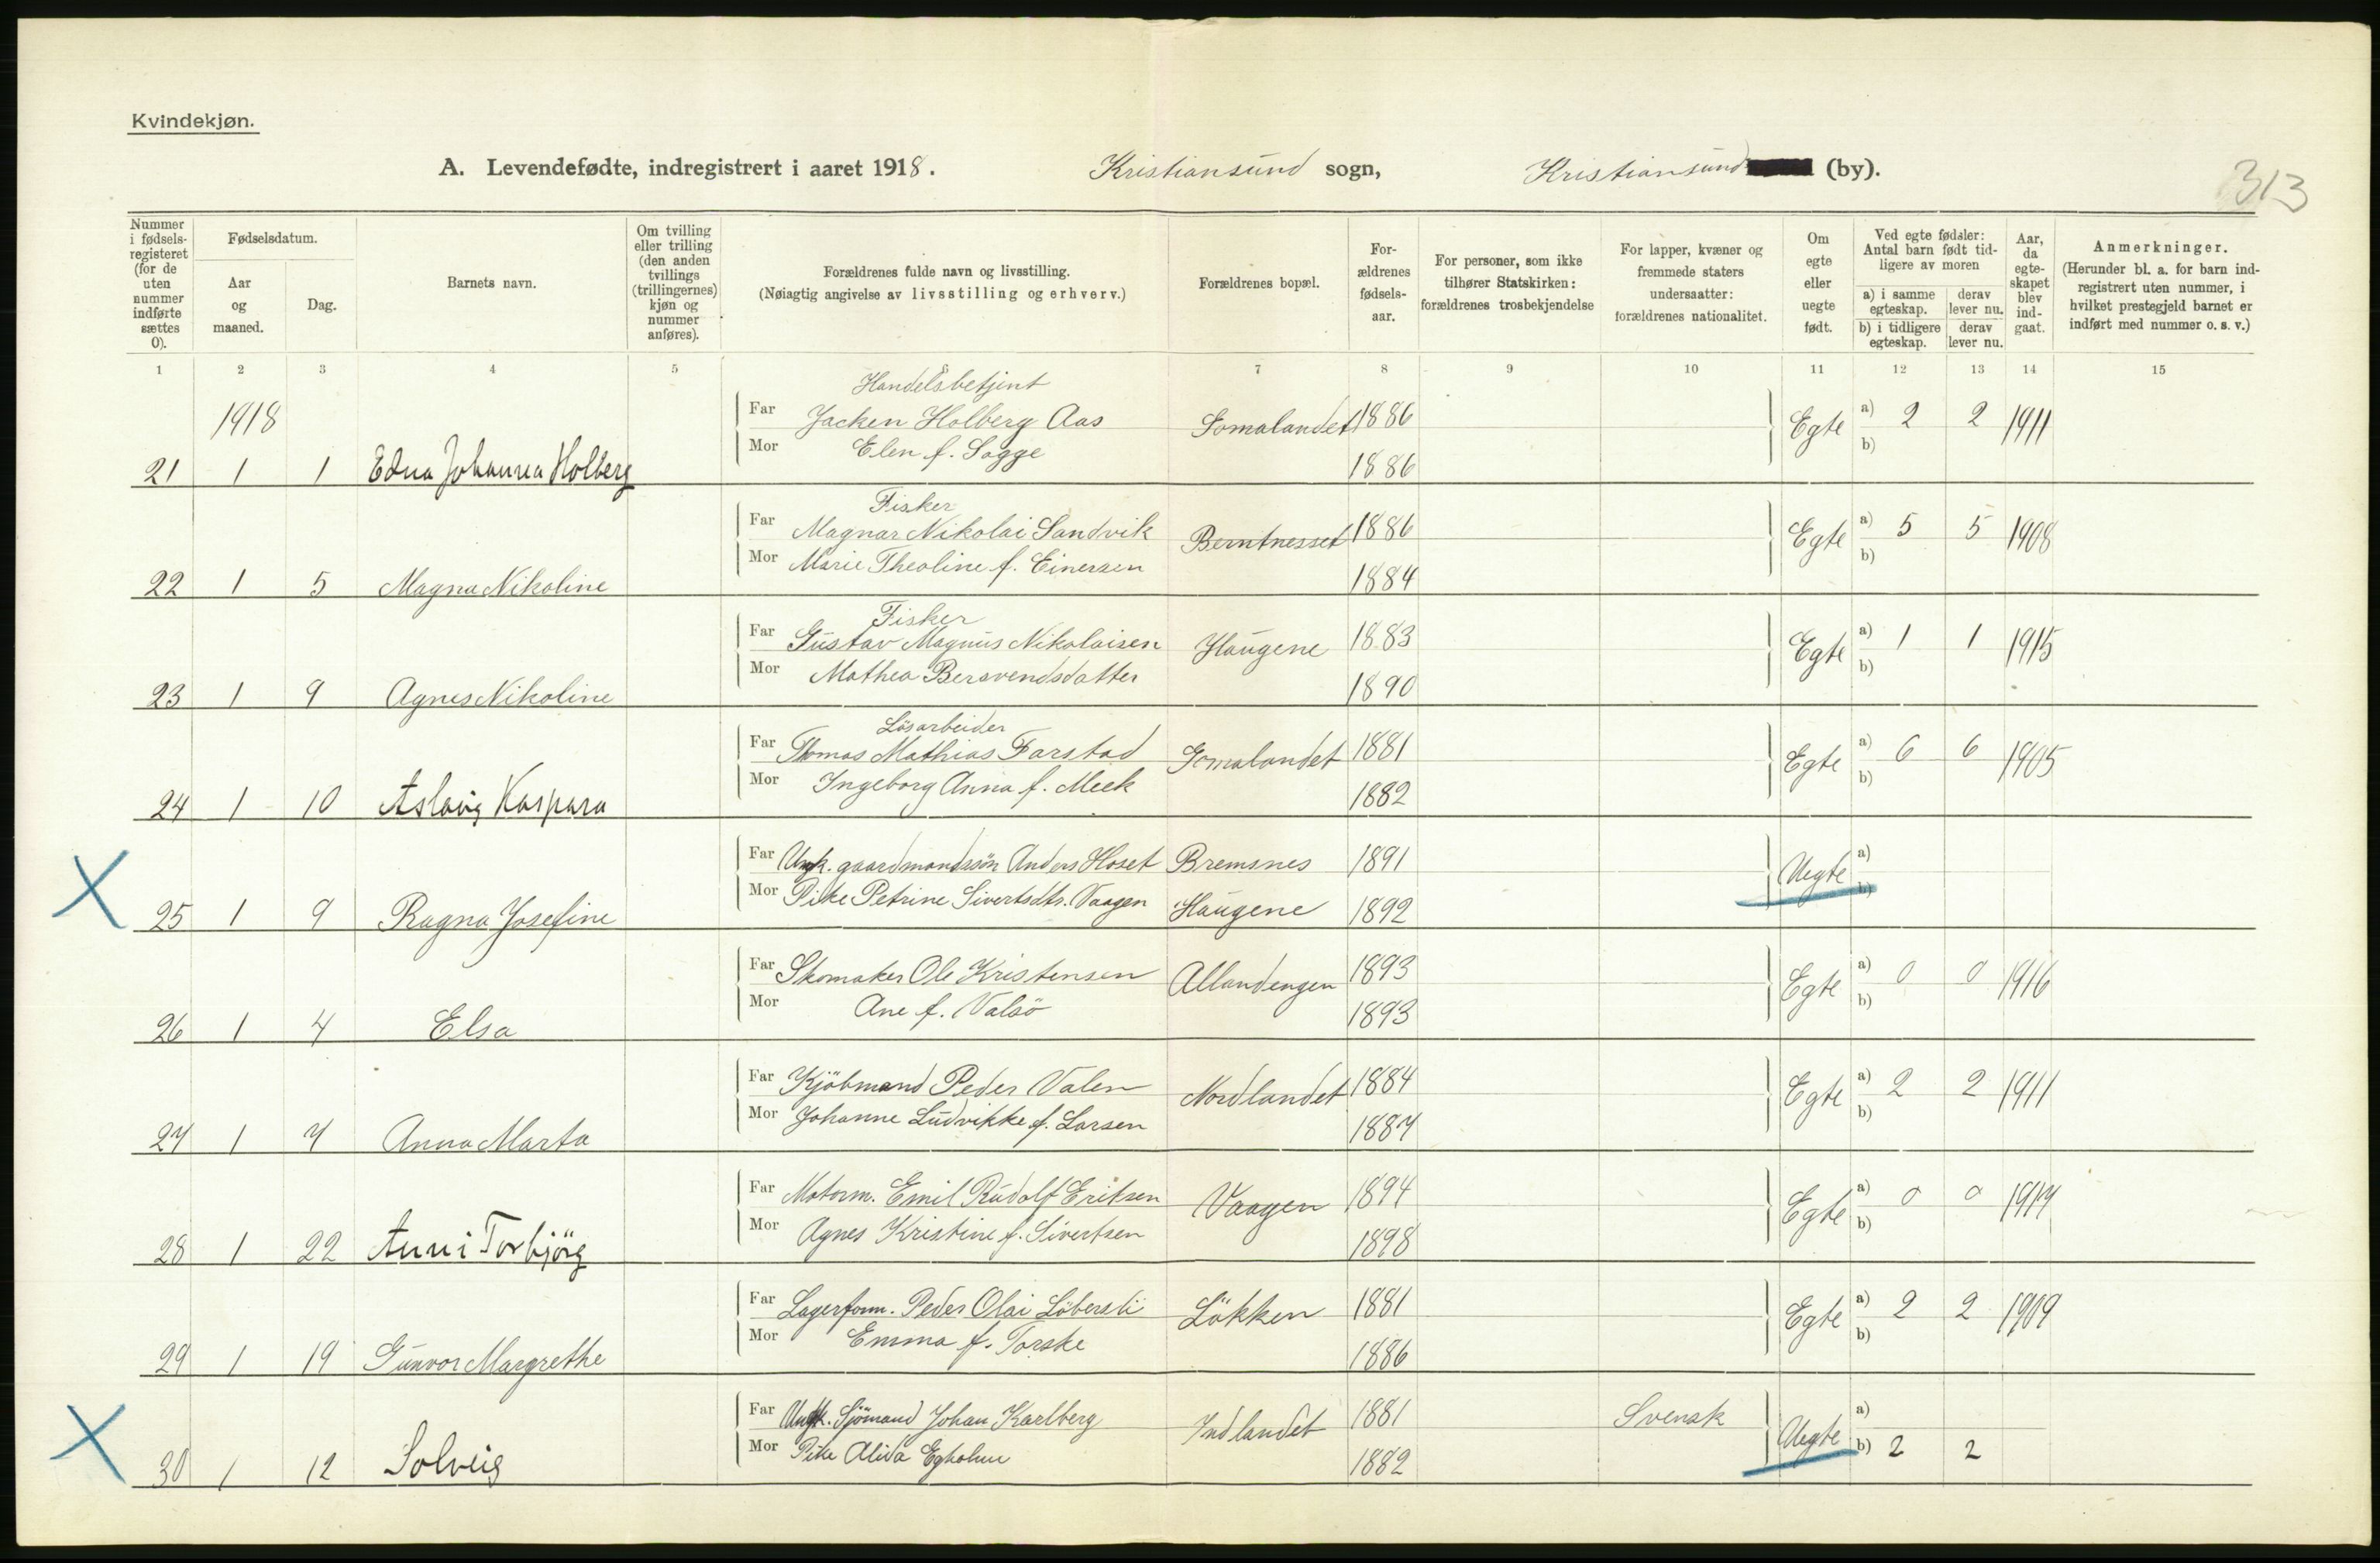 Kvindekjøn.
A. Levendefødte, indregistrert i aaret 1918. Kristiansund sogn, Kristiansund (by).
313
Nummer i fødsels-registeret (for de uten nummer indførte sættes 0).
Fødselsdatum.
Aar og maaned.
Dag.
Barnets navn.
Om tvilling eller trilling (den anden tvillings (trillingernes) kjøn og nummer anføres).
Forældrenes fulde navn og livsstilling.
(Nøiagtig angivelse av livsstilling og erhverv.)
Forældrenes bopæl.
For-ældrenes fødsels-aar.
For personer, som ikke tilhører Statskirken: forældrenes trosbekjendelse
For lapper, kvæner og fremmede staters undersaatter: forældrenes nationalitet.
Om egte eller uegte født.
Ved egte fødsler: Antal barn født tid-ligere av moren
a) i samme egteskap. derav lever nu.
b) i tidligere egteskap. derav lever nu.
Aar, da egte-skapet blev ind-gaat.
Anmerkninger.
(Herunder bl. a. for barn ind-registrert uten nummer, i hvilket prestegjeld barnet er indført med nummer o. s. v.)
1 2 3 4 5 6 7 8 9 10 11 12 13 14 15
1918
Handelsbetjent
Far Jacken Holberg Aas Gomalandet 1886 Egte a) 2 2 1911
Mor Elen f. Sagge 1886 b)
21 1 1 Edna Johanna Holberg
Fisker
Far Magnar Nikolai Sandvik Berntnesset 1886 Egte a) 5 5 1908
Mor Marie Theoline f. Einersen 1884 b)
22 1 5 Magna Nikoline
Fisker
Far Gustav Magnus Nikolaisen Haugene 1883 Egte a) 1 1 1915
Mor Mathea Bersvendsdatter 1890 b)
23 1 9 Agnes Nikoline
Løsarbeider
Far Thomas Mathias Farstad Gomalandet 1881 Egte a) 6 6 1905
Mor Ingeborg Anna f. Meek 1882 b)
24 1 10 Aslaug Kaspara
Far Ungk. gaardmandssön Anders Hoset Bremsnes 1891 Uegte a)
Mor Pike Petrine Sivertsdtr. Vaagen Haugene 1892 b)
25 1 9 Ragna Josefine
Far Skomaker Ole Kristensen Allandengen 1893 Egte a) 0 0 1916
Mor Ane f. Valsö 1893 b)
26 1 4 Elsa
Far Kjöbmand Peder Valen Nordlandet 1884 Egte a) 2 2 1911
Mor Johanne Ludvikke f. Larsen 1887 b)
27 1 7 Anna Marta
Far Motorm. Emil Rudolf Eriksen Vaagen 1894 Egte a) 0 0 1917
Mor Agnes Kristine f. Sivertsen 1898 b)
28 1 22 Anni Torbjörg
Far Lagerform. Peder Olai Löbersli Lökken 1881 Egte a) 2 2 1909
Mor Emma f. Torske 1886 b)
29 1 19 Gunvor Margrethe
Far Ungk. Sjömand Johan Karlberg Indlandet 1881 Svensk Uegte a)
Mor Pike Alida Egholm 1882 b) 2 2
30 1 12 Solveig